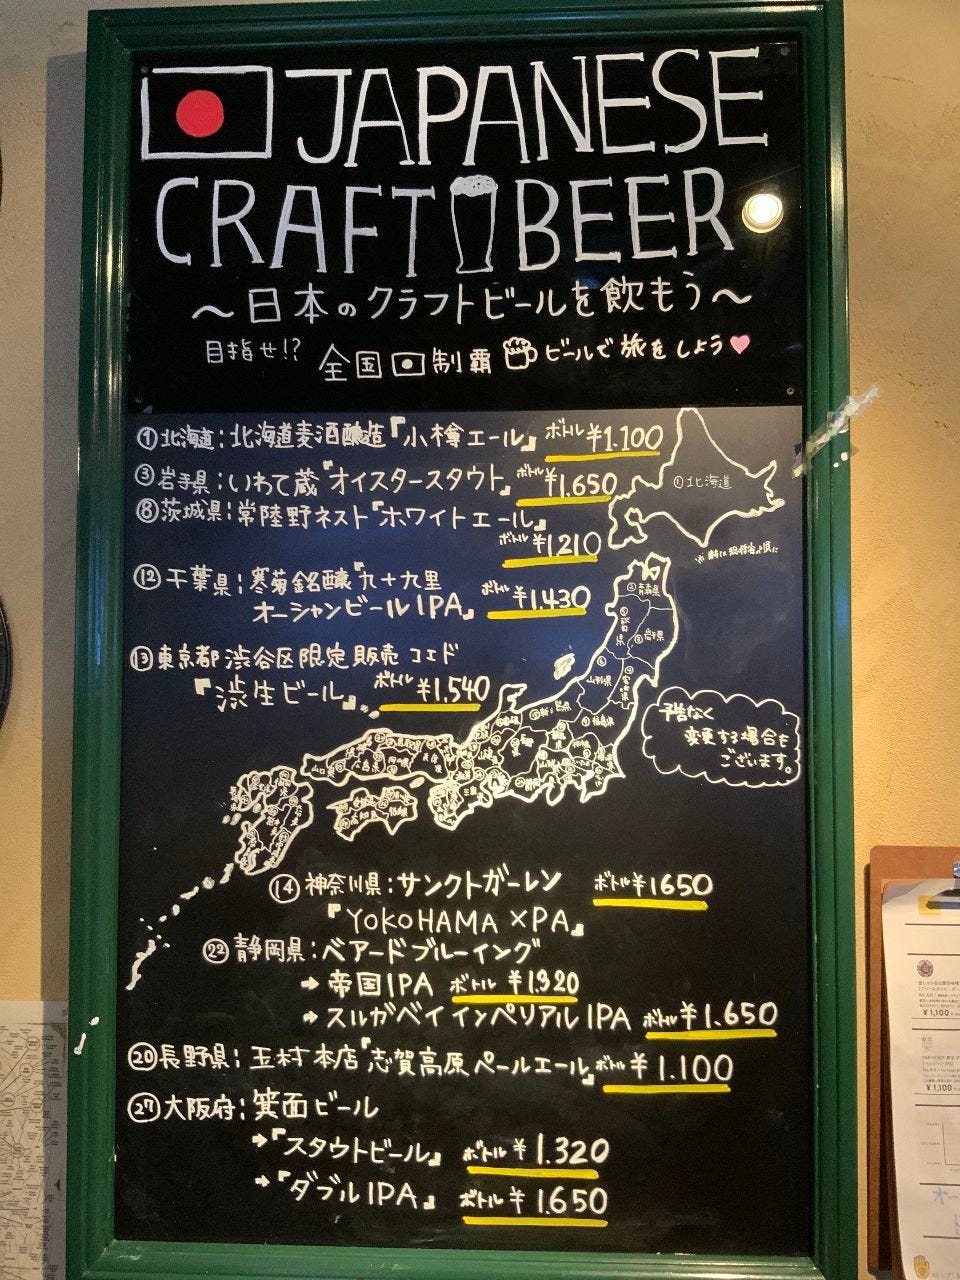 JAPANESE
CRAFT BEER
～日本のクラフトビールを飲もう～
目指せ!? 全国制覇 ビールで旅をしよう
①北海道:北海道麦酒醸造『小樽エール』 ボトル ¥1.100
③岩手県:いわて蔵『オイスタースタウト』 ボトル ¥1,650
⑧茨城県:常陸野ネスト『ホワイトエール』
ボトル ¥1210
⑫千葉県:寒菊銘醸『九十九里
オーシャンビールIPA』 ボトル ¥1.430
⑬東京都 渋谷区限定販売 コエド
『渋生ビール』 ボトル ¥1,540
①北海道
青森県
岩手県
山形県
福島県
予告なく
変更する場合も
ございます。
山口県
広島県
高知県
⑭神奈川県:サンクトガーレン ボトル ¥1650
『YOKOHAMA XPA』
㉒静岡県:ベアードブルーイング
→帝国IPA ボトル ¥1.320
→スルガベイインペリアルIPA ボトル ¥1.650
⑳長野県:玉村本店『志賀高原ペールエール』ボトル ¥1.100
㉗大阪府:箕面ビール
→『スタウトビール』 ボトル ¥1.320
→『ダブルIPA』 ボトル ¥1.650
¥1,100
¥1,100